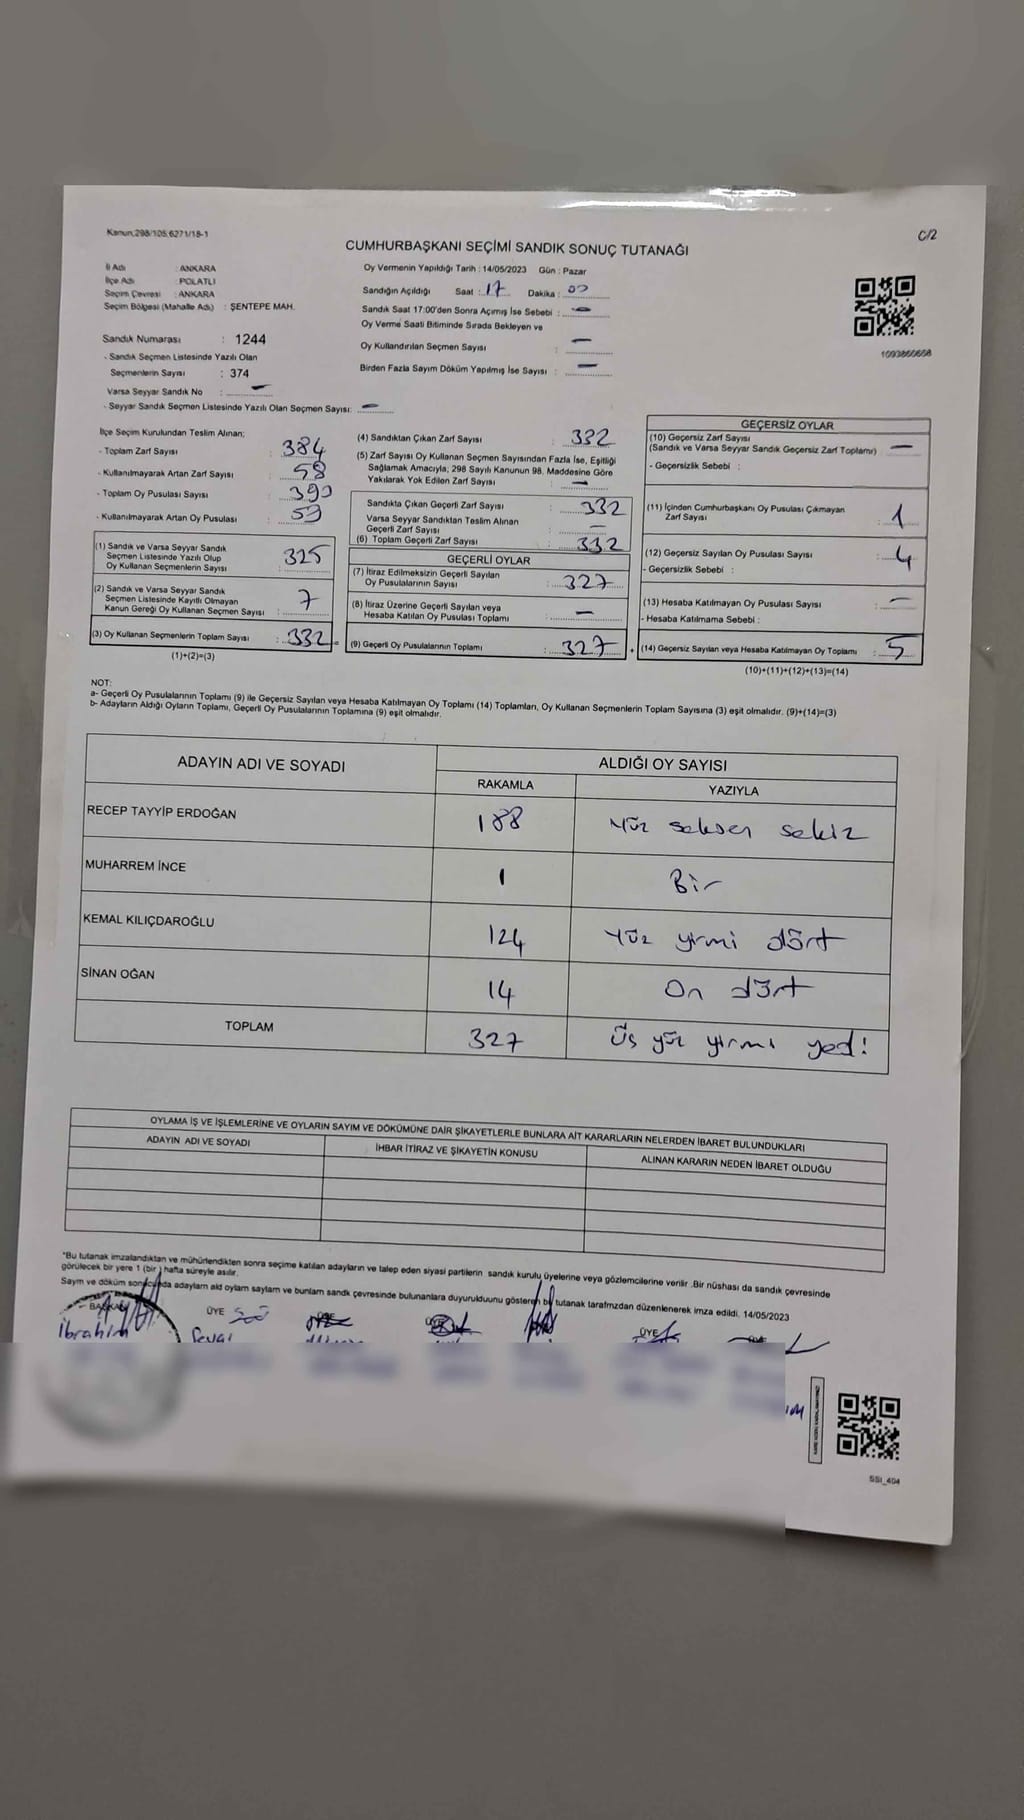 Kanun:298/105;6271/18-1
C/2
CUMHURBAŞKANI SEÇİMİ SANDIK SONUÇ TUTANAĞI
İl Adı : ANKARA
İlçe Adı : POLATLI
Seçim Çevresi : ANKARA
Seçim Bölgesi (Mahalle Adı) : ŞENTEPE MAH.
Sandık Numarası : 1244
- Sandık Seçmen Listesinde Yazılı Olan
Seçmenlerin Sayısı : 374
Varsa Seyyar Sandık No : –
- Seyyar Sandık Seçmen Listesinde Yazılı Olan Seçmen Sayısı: –
Oy Vermenin Yapıldığı Tarih : 14/05/2023 Gün : Pazar
Sandığın Açıldığı Saat : 17 Dakika : 00
Sandık Saat 17:00'den Sonra Açılmış İse Sebebi : –
Oy Verme Saati Bitiminde Sırada Bekleyen ve
Oy Kullandırılan Seçmen Sayısı : –
Birden Fazla Sayım Döküm Yapılmış İse Sayısı : –
1093860668
İlçe Seçim Kurulundan Teslim Alınan;
- Toplam Zarf Sayısı : 384
- Kullanılmayarak Artan Zarf Sayısı : 58
- Toplam Oy Pusulası Sayısı : 390
- Kullanılmayarak Artan Oy Pusulası : 59
(1) Sandık ve Varsa Seyyar Sandık
Seçmen Listesinde Yazılı Olup
Oy Kullanan Seçmenlerin Sayısı : 325
(2) Sandık ve Varsa Seyyar Sandık
Seçmen Listesinde Kayıtlı Olmayan
Kanun Gereği Oy Kullanan Seçmen Sayısı : 7
(3) Oy Kullanan Seçmenlerin Toplam Sayısı : 332 =
(1)+(2)=(3)
(4) Sandıktan Çıkan Zarf Sayısı : 332
(5) Zarf Sayısı Oy Kullanan Seçmen Sayısından Fazla İse, Eşitliği
Sağlamak Amacıyla; 298 Sayılı Kanunun 98. Maddesine Göre
Yakılarak Yok Edilen Zarf Sayısı : –
Sandıkta Çıkan Geçerli Zarf Sayısı : 332
Varsa Seyyar Sandıktan Teslim Alınan
Geçerli Zarf Sayısı : –
(6) Toplam Geçerli Zarf Sayısı : 332
GEÇERLİ OYLAR
(7) İtiraz Edilmeksizin Geçerli Sayılan
Oy Pusulalarının Sayısı : 327
(8) İtiraz Üzerine Geçerli Sayılan veya
Hesaba Katılan Oy Pusulası Toplamı : –
(9) Geçerli Oy Pusulalarının Toplamı : 327 +
GEÇERSİZ OYLAR
(10) Geçersiz Zarf Sayısı
(Sandık ve Varsa Seyyar Sandık Geçersiz Zarf Toplamı) : –
- Geçersizlik Sebebi :
(11) İçinden Cumhurbaşkanı Oy Pusulası Çıkmayan
Zarf Sayısı : 1
(12) Geçersiz Sayılan Oy Pusulası Sayısı : 4
- Geçersizlik Sebebi :
(13) Hesaba Katılmayan Oy Pusulası Sayısı : –
- Hesaba Katılmama Sebebi :
(14) Geçersiz Sayılan veya Hesaba Katılmayan Oy Toplamı : 5
(10)+(11)+(12)+(13)=(14)
NOT:
a- Geçerli Oy Pusulalarının Toplamı (9) ile Geçersiz Sayılan veya Hesaba Katılmayan Oy Toplamı (14) Toplamları, Oy Kullanan Seçmenlerin Toplam Sayısına (3) eşit olmalıdır. (9)+(14)=(3)
b- Adayların Aldığı Oyların Toplamı, Geçerli Oy Pusulalarının Toplamına (9) eşit olmalıdır.
ADAYIN ADI VE SOYADI ALDIĞI OY SAYISI
RAKAMLA YAZIYLA
RECEP TAYYİP ERDOĞAN 188 Yüz seksen sekiz
MUHARREM İNCE 1 Bir
KEMAL KILIÇDAROĞLU 124 Yüz yirmi dört
SİNAN OĞAN 14 On dört
TOPLAM 327 Üç yüz yirmi yedi
OYLAMA İŞ VE İŞLEMLERİNE VE OYLARIN SAYIM VE DÖKÜMÜNE DAİR ŞİKAYETLERLE BUNLARA AİT KARARLARIN NELERDEN İBARET BULUNDUKLARI
ADAYIN ADI VE SOYADI İHBAR İTİRAZ VE ŞİKAYETİN KONUSU ALINAN KARARIN NEDEN İBARET OLDUĞU
*Bu tutanak imzalandıktan ve mühürlendikten sonra seçime katılan adayların ve talep eden siyasi partilerin sandık kurulu üyelerine veya gözlemcilerine verilir .Bir nüshası da sandık çevresinde
görülecek bir yere 1 (bir ) hafta süreyle asılır.
Sayım ve döküm sonucunda adayların ald oyların sayıların ve bunların sandık çevresinde bulunanlara duyurulduunu gösteren bu tutanak tarafımzdan düzenlenerek imza edildi. 14/05/2023
BAŞKAN ÜYE ÜYE
İbrahim
SSI_404